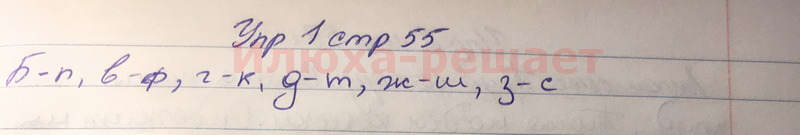 Упр 1 стр 55
Илюха-решает
Б-п, в-ф, г-к, д-т, ж-ш, з-с